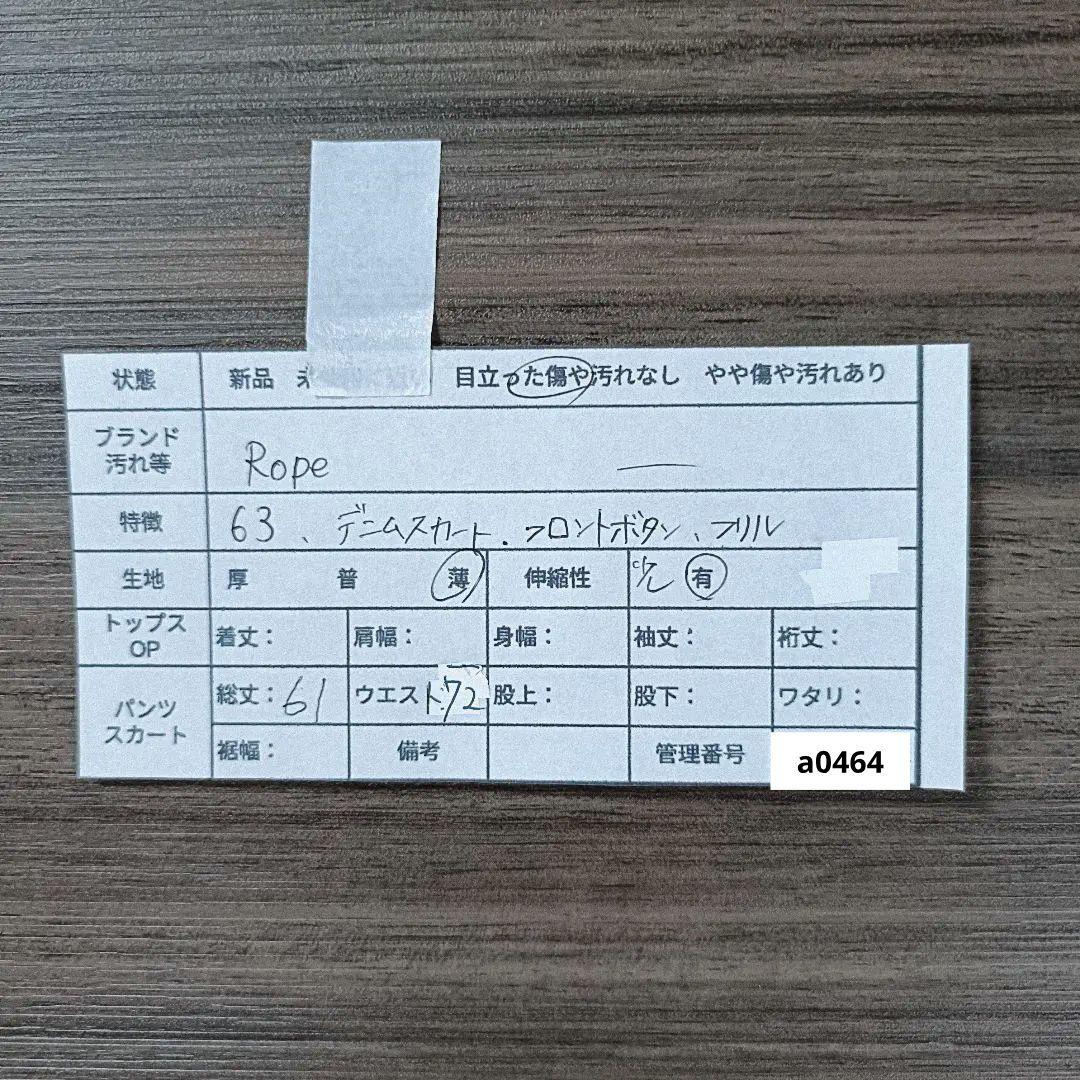 状態 新品 目立った傷や汚れなし やや傷や汚れあり
ブランド
汚れ等 Rope ―
特徴 63、デニムスカート.フロントボタン、フリル
生地 厚 普 薄 伸縮性 少し 有
トップス
OP 着丈: 肩幅: 身幅: 袖丈: 裄丈:
パンツ
スカート 総丈:61 ウエスト:72 股上: 股下: ワタリ:
裾幅: 備考 管理番号 a0464